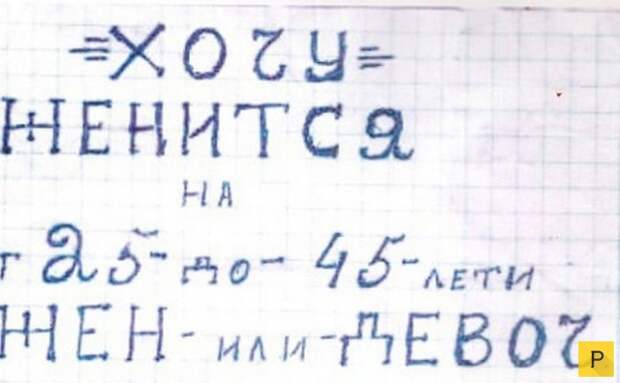 =ХОЧУ=
ЖЕНИТСЯ
НА
т 25-до-45-лети
ЖЕН-или-ДЕВОЧ
P